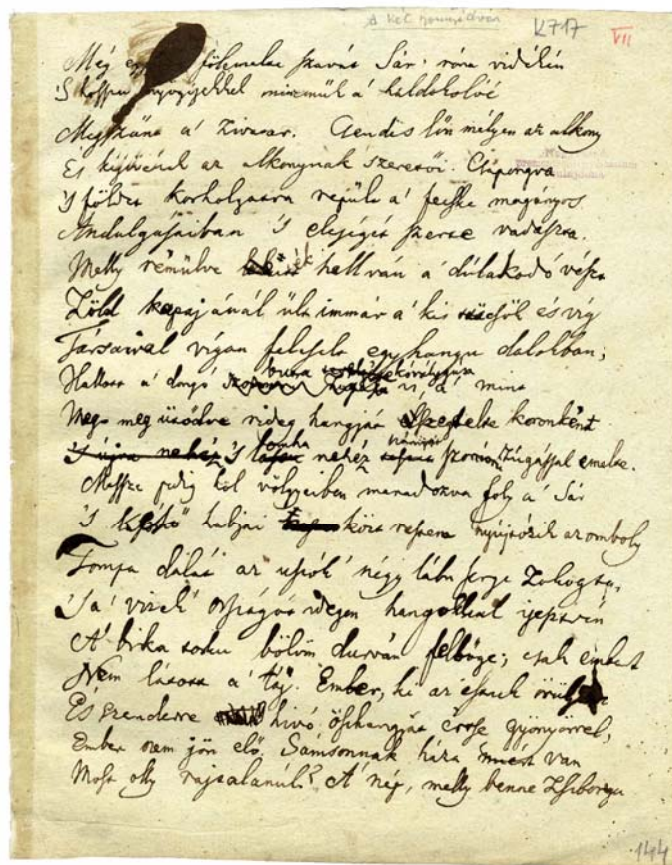 a két szomszédvár
K717
VII
Még fölemelte szavát Sár' róna vidékén
'S hosszu a' haldokoló
Megszünt a' Zivatar. Csendes lőn mélyen az alkony
És kijövének az alkonynak szeretői. Csipongva
'S földet korholgatva repüle a' fecske magányos
Andalgásaiban 's eleségét szerte vadászta.
Melly rémülve hallván a' dúlakodó vészt
Zöld kapujánál ült immár a' kis és víg
Társaival vígan felesele egy hangu dalokban;
Hallott a' dongó is, a' mint
Meg meg ütődve rideg hangját koronként
's újra nehéz 's lomha nehéz szárnyait zúgással emelte.
Messze pedig köl völgyeiben maradozva foly a' Sár
's habjai közt resteve nyújtózik az omboly
Tompa dalát az uszók' négy lábu serge Zokogta,
'S a' vizek' országát idegen hangokkal ijesztvén
A' bika torku bölöm durván felbőge; csak embert
Nem látott a' táj. Ember, ki az esték'
És szenderre hivó, összhangját érzse gyönyörrel,
Ember nem jön elő. Sámsonnak háza miért van
Most olly rajtalanúl? A' nép, melly benne Zsiborga
144